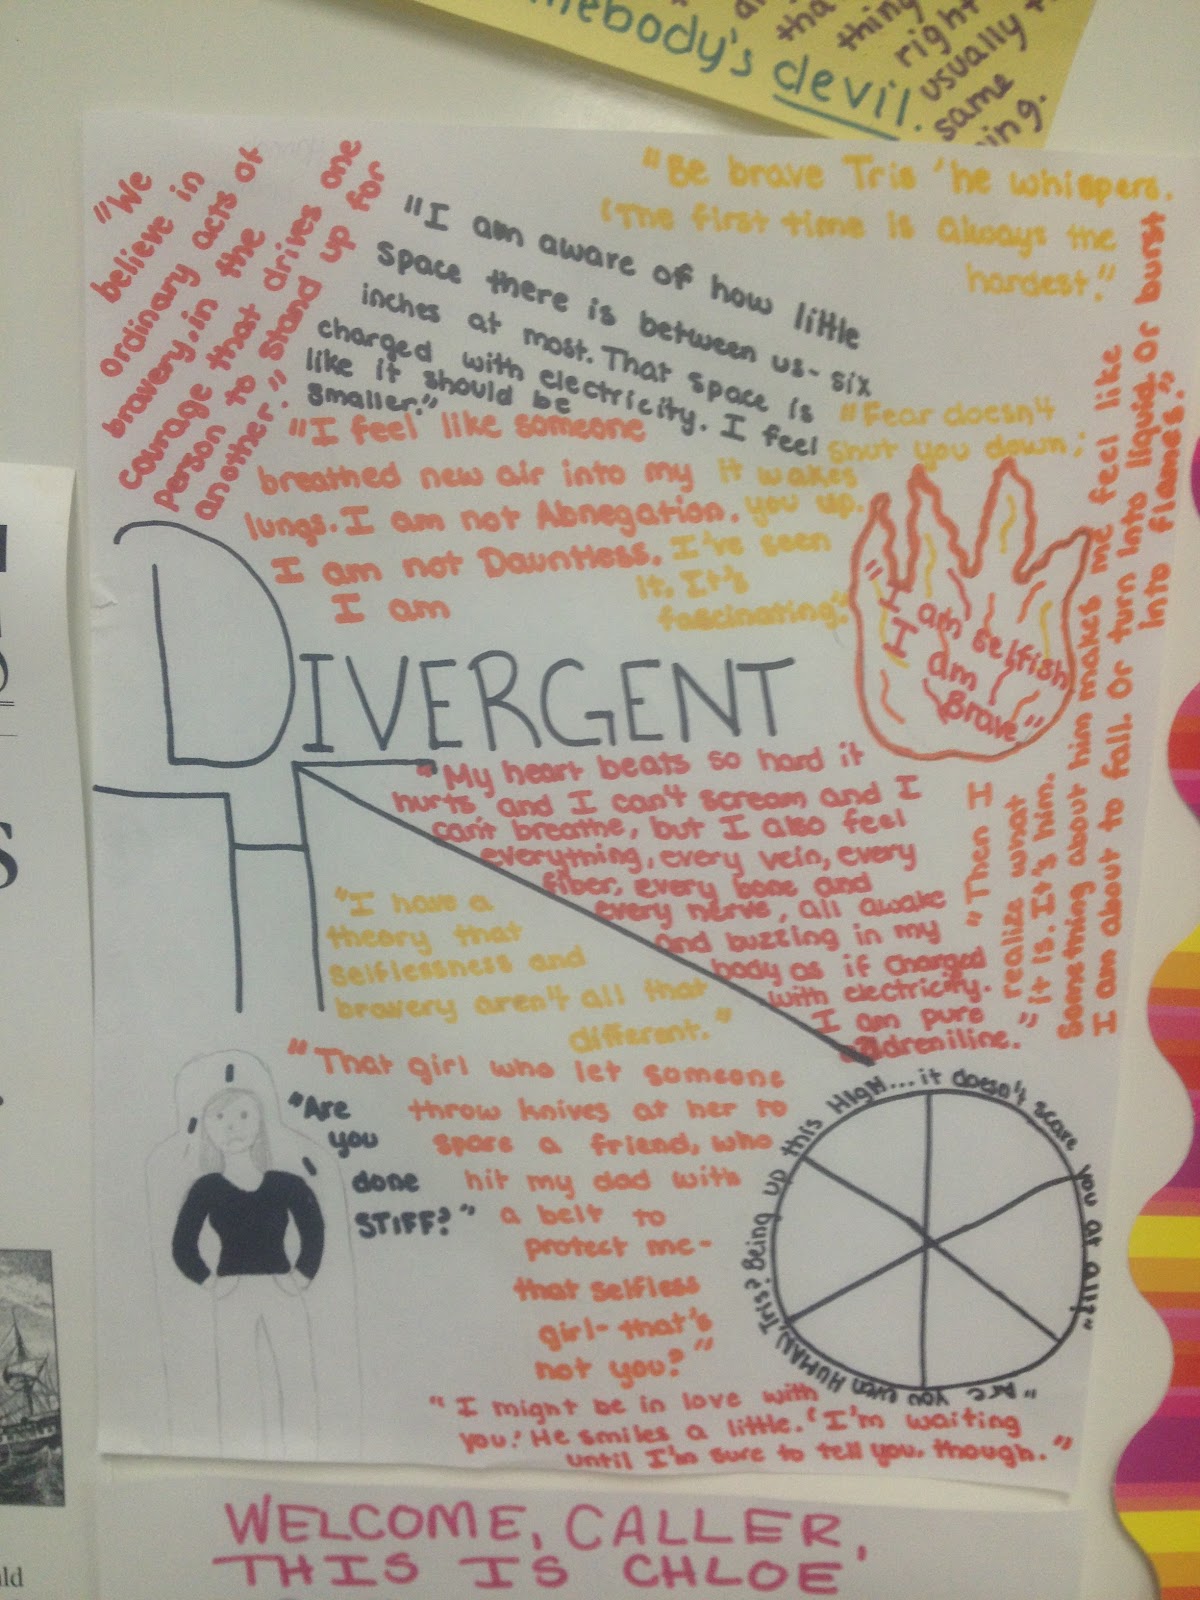 mebody's devil.
thing
right
usually
same
"We
believe in
ordinary acts of
bravery, in the
courage that drives one
person to stand up for
another."
"I am aware of how little
space there is between us- six
inches at most. That space is
charged with electricity. I feel
like it should be
smaller."
"Be brave Tris 'he whispers.
'The first time is always the
hardest."
"I feel like someone
breathed new air into my
lungs. I am not Abnegation.
I am not Dauntless.
I am
DIVERGENT
"Fear doesn't
shut you down;
it wakes
you up.
I've seen
it. It's
fascinating."
"I am selfish
I am
Brave"
"Then I
realize what
it is. It's him.
Something about him makes me feel like
I am about to fall. Or turn into liquid. Or burst
into flames."
"My heart beats so hard it
hurts and I can't scream and I
can't breathe, but I also feel
everything, every vein, every
fiber, every bone and
every nerve, all awake
and buzzing in my
body as if charged
with electricity.
I am pure
adreniline."
"I have a
theory that
selflessness and
bravery aren't all that
different."
"That girl who let someone
throw knives at her to
spare a friend, who
hit my dad with
a belt to
protect me-
that selfless
girl- that's
not you?"
"Are
you
done
STIFF?"
"Are you even HUMAN, Tris? Being up this HIGH... it doesn't scare you at all?"
"I might be in love with
you.' He smiles a little. 'I'm waiting
until I'm sure to tell you, though."
WELCOME, CALLER,
THIS IS CHLOE